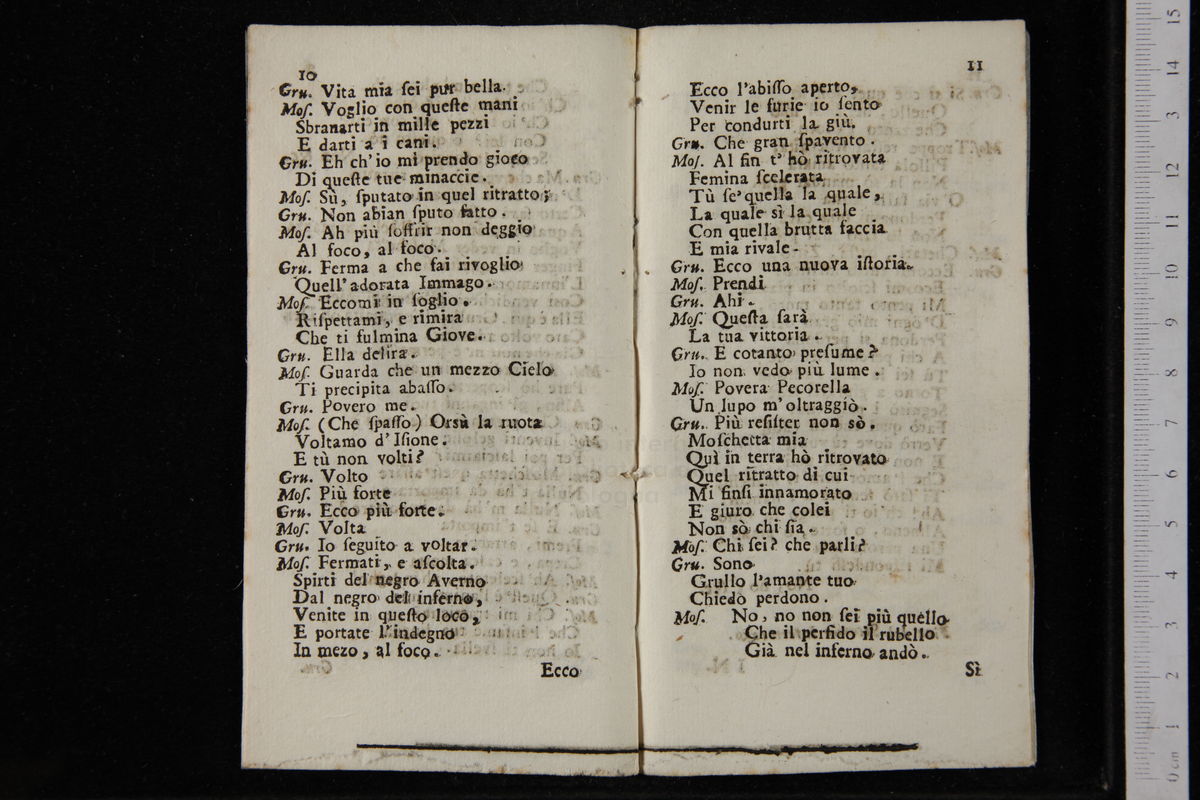 10
Gru. Vita mia ſei pur bella.
Moſ. Voglio con queſte mani
Sbranarti in mille pezzi
E darti a i cani.
Gru. Eh ch'io mi prendo gioco
Di queſte tue minaccie.
Moſ. Sù, ſputato in quel ritratto;
Gru. Non abian ſputo fatto.
Moſ. Ah più ſoffrir non deggio
Al foco, al foco.
Gru. Ferma a che fai rivoglio
Quell'adorata Immago.
Moſ. Eccomi in ſoglio.
Riſpettami, e rimira
Che ti fulmina Giove.
Gru. Ella delira.
Moſ. Guarda che un mezzo Cielo
Ti precipita abaſſo.
Gru. Povero me.
Moſ. (Che ſpaſſo) Orsù la ruota
Voltamo d'Iſione.
E tù non volti?
Gru. Volto
Moſ. Più forte
Gru. Ecco più forte.
Moſ. Volta
Gru. Io ſeguito a voltar.
Moſ. Fermati, e aſcolta.
Spirti del negro Averno
Dal negro del inferno,
Venite in queſto loco,
E portate l'indegno
In mezo, al foco.
Ecco
11
Ecco l'abiſſo aperto,
Venir le furie io ſento
Per condurti la giù.
Gru. Che gran ſpavento.
Moſ. Al fin t'hò ritrovata
Femina ſcelerata
Tù ſe'quella la quale,
La quale sì la quale
Con quella brutta faccia
E mia rivale.
Gru. Ecco una nuova iſtoria.
Moſ. Prendi
Gru. Ahi.
Moſ. Queſta ſarà
La tua vittoria.
Gru. E cotanto preſume?
Io non vedo più lume.
Moſ. Povera Pecorella
Un lupo m'oltraggiò.
Gru. Più reſiſter non sò.
Moſchetta mia
Quì in terra hò ritrovato
Quel ritratto di cui
Mi finſi innamorato
E giuro che colei
Non sò chi ſia.
Moſ. Chi ſei? che parli?
Gru. Sono
Grullo l'amante tuo
Chiedo perdono.
Moſ. No, no non ſei più quello
Che il perfido il rubello
Già nel inferno andò.
Sì
15
14
3
12
11
10
9
8
7
6
5
4
3
2
1
0 cm